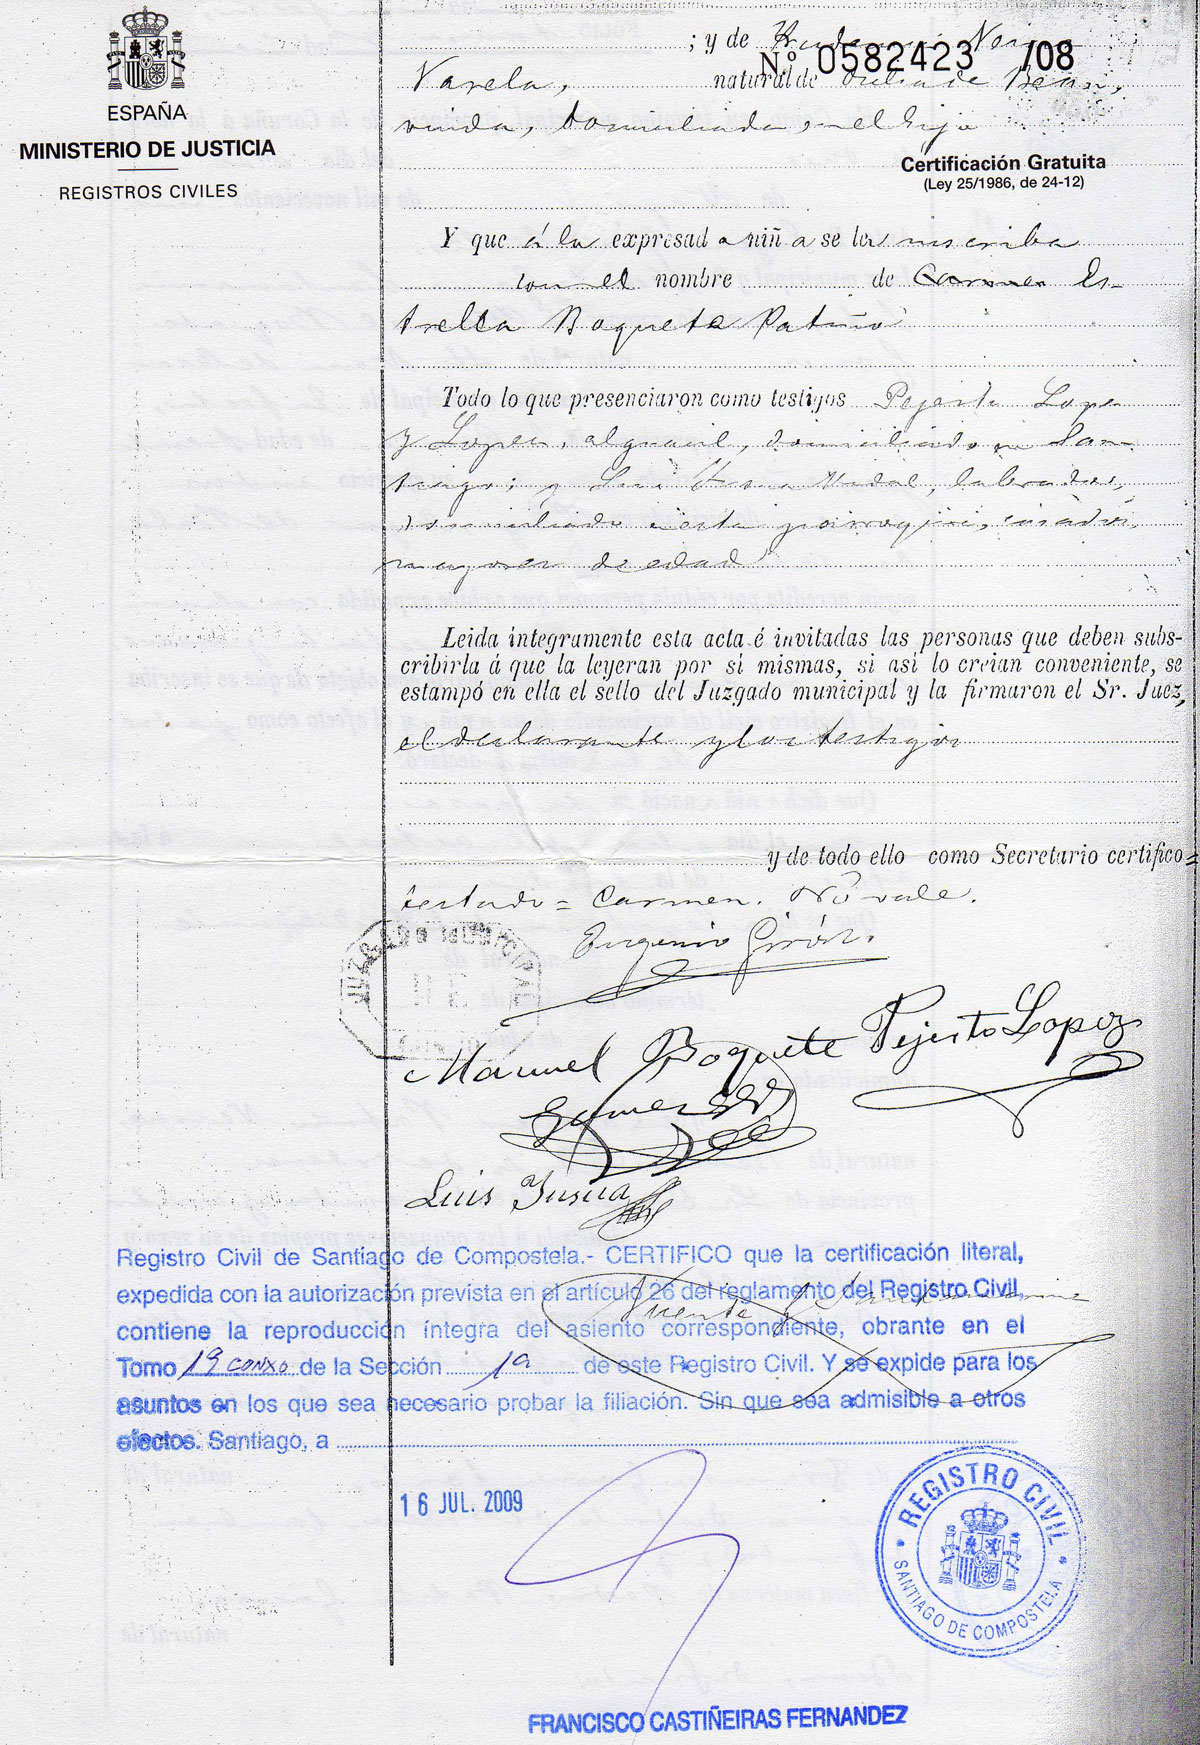 ESPAÑA
MINISTERIO DE JUSTICIA
REGISTROS CIVILES
; y de
Nº 0582423 /08
Varela, natural de
viuda, domiciliada en el hijo
Certificación Gratuita
(Ley 25/1986, de 24-12)
Y que á la expresad a niñ a se le inscriba
con el nombre de Carmen Es-
trella Boquete Patiño
Todo lo que presenciaron como testigos Pejerto Lopez
y Lopez, alguacil, domiciliado en San-
tiago; y Luis Vidal, labrador,
domiciliado en esta parroquia, casados,
mayores de edad
Leida íntegramente esta acta é invitadas las personas que deben subs-
cribirla á que la leyeran por sí mismas, si así lo creian conveniente, se
estampó en ella el sello del Juzgado municipal y la firmaron el Sr. Juez,
el declarante y los testigos
y de todo ello como Secretario certifico=
testado = Carmen. No vale.
Eugenio Girón.
JUZGADO MUNICIPAL
Manuel Boquete Pejerto Lopez
Luis Insua
Registro Civil de Santiago de Compostela.- CERTIFICO que la certificación literal,
expedida con la autorización prevista en el artículo 26 del reglamento del Registro Civil,
contiene la reproducción íntegra del asiento correspondiente, obrante en el
Tomo 19 CONXO de la Sección 1ª de este Registro Civil. Y se expide para los
asuntos en los que sea necesario probar la filiación. Sin que sea admisible a otros
efectos. Santiago, a
16 JUL. 2009
REGISTRO CIVIL
SANTIAGO DE COMPOSTELA
FRANCISCO CASTIÑEIRAS FERNANDEZ